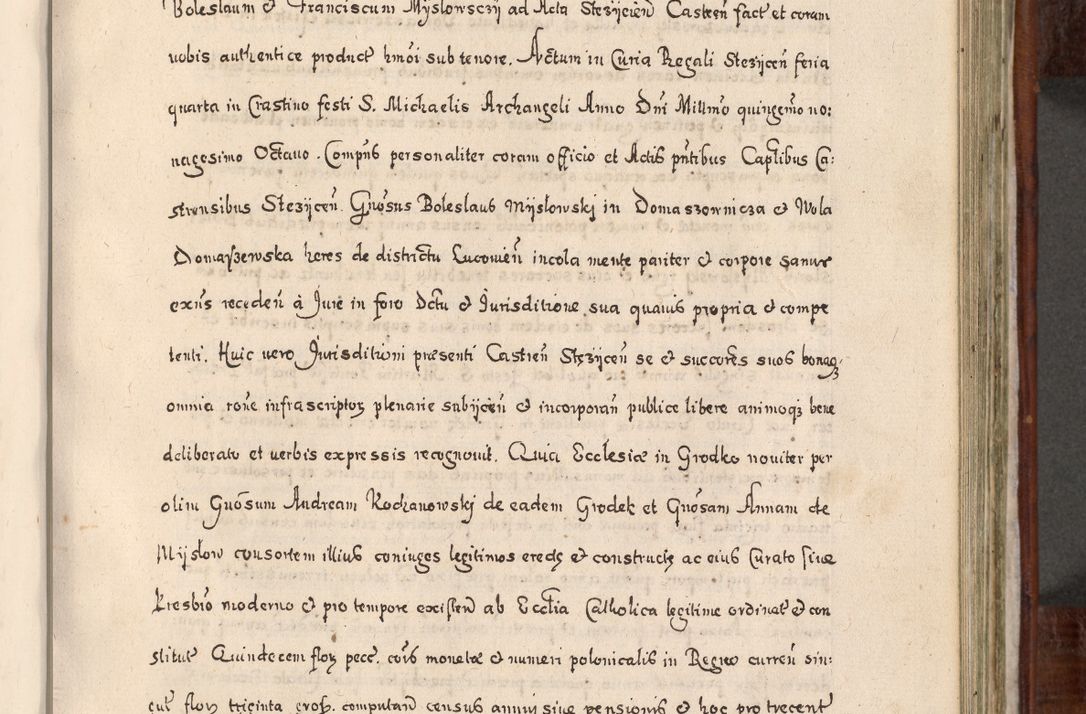 Boleslaum & Franciscum Mÿslowsczÿ ad Acta Stezÿcień Castreń fact̃ et coram
uobis authentice product̃ hmõi sub tenore. Actum in Curia Regali Stezÿceń feria
quarta in Crastino festi S. Michaelis Archangeli Anno Dñi Millm̃o quingem̃o no:
nagesimo Octauo. Compñs personaliter coram officio et Actis pñtibus Captlibus Ca:
strensibus Stezÿceń. Gñosus Boleslaus Mÿsłowskj in Domaszownicza & Wola
Domaszewska heres de districtu Lucowień incola mente pariter & corpore sanus
exñs recedeń à Jure in foro Dctu & Jurisditione sua quauis propria & compe
tenti. Huic uero Jurisditioni præsenti Castreń Stezÿceń se & succores suos bonaqꝫ
omnia rõne infrascriptoꝝ plenarie subijcień & incorporań publice libere animoqꝫ bene
deliberato et uerbis expressis recognouit. Quia Ecclesiæ in Grodko nouiter per
olim Gñosum Andream Kochanowskj de eadem Grodek et Gñosam Annam de
Mÿsłow consortem illius coniuges legitimos erectę & constructę ac eius Curato siue
Presbr̃o moderno & pro tempore existeń ab Eccl̃ia Catholica legitime ordinat̃ & con
stitut̃ Quindecem floꝝ pecc. cõis monetæ & numeri polonicalis in Regno curreń sin:
gul̃ floꝝ triginta gross. computań census annui siue pensionis & hoc pro trecent̃